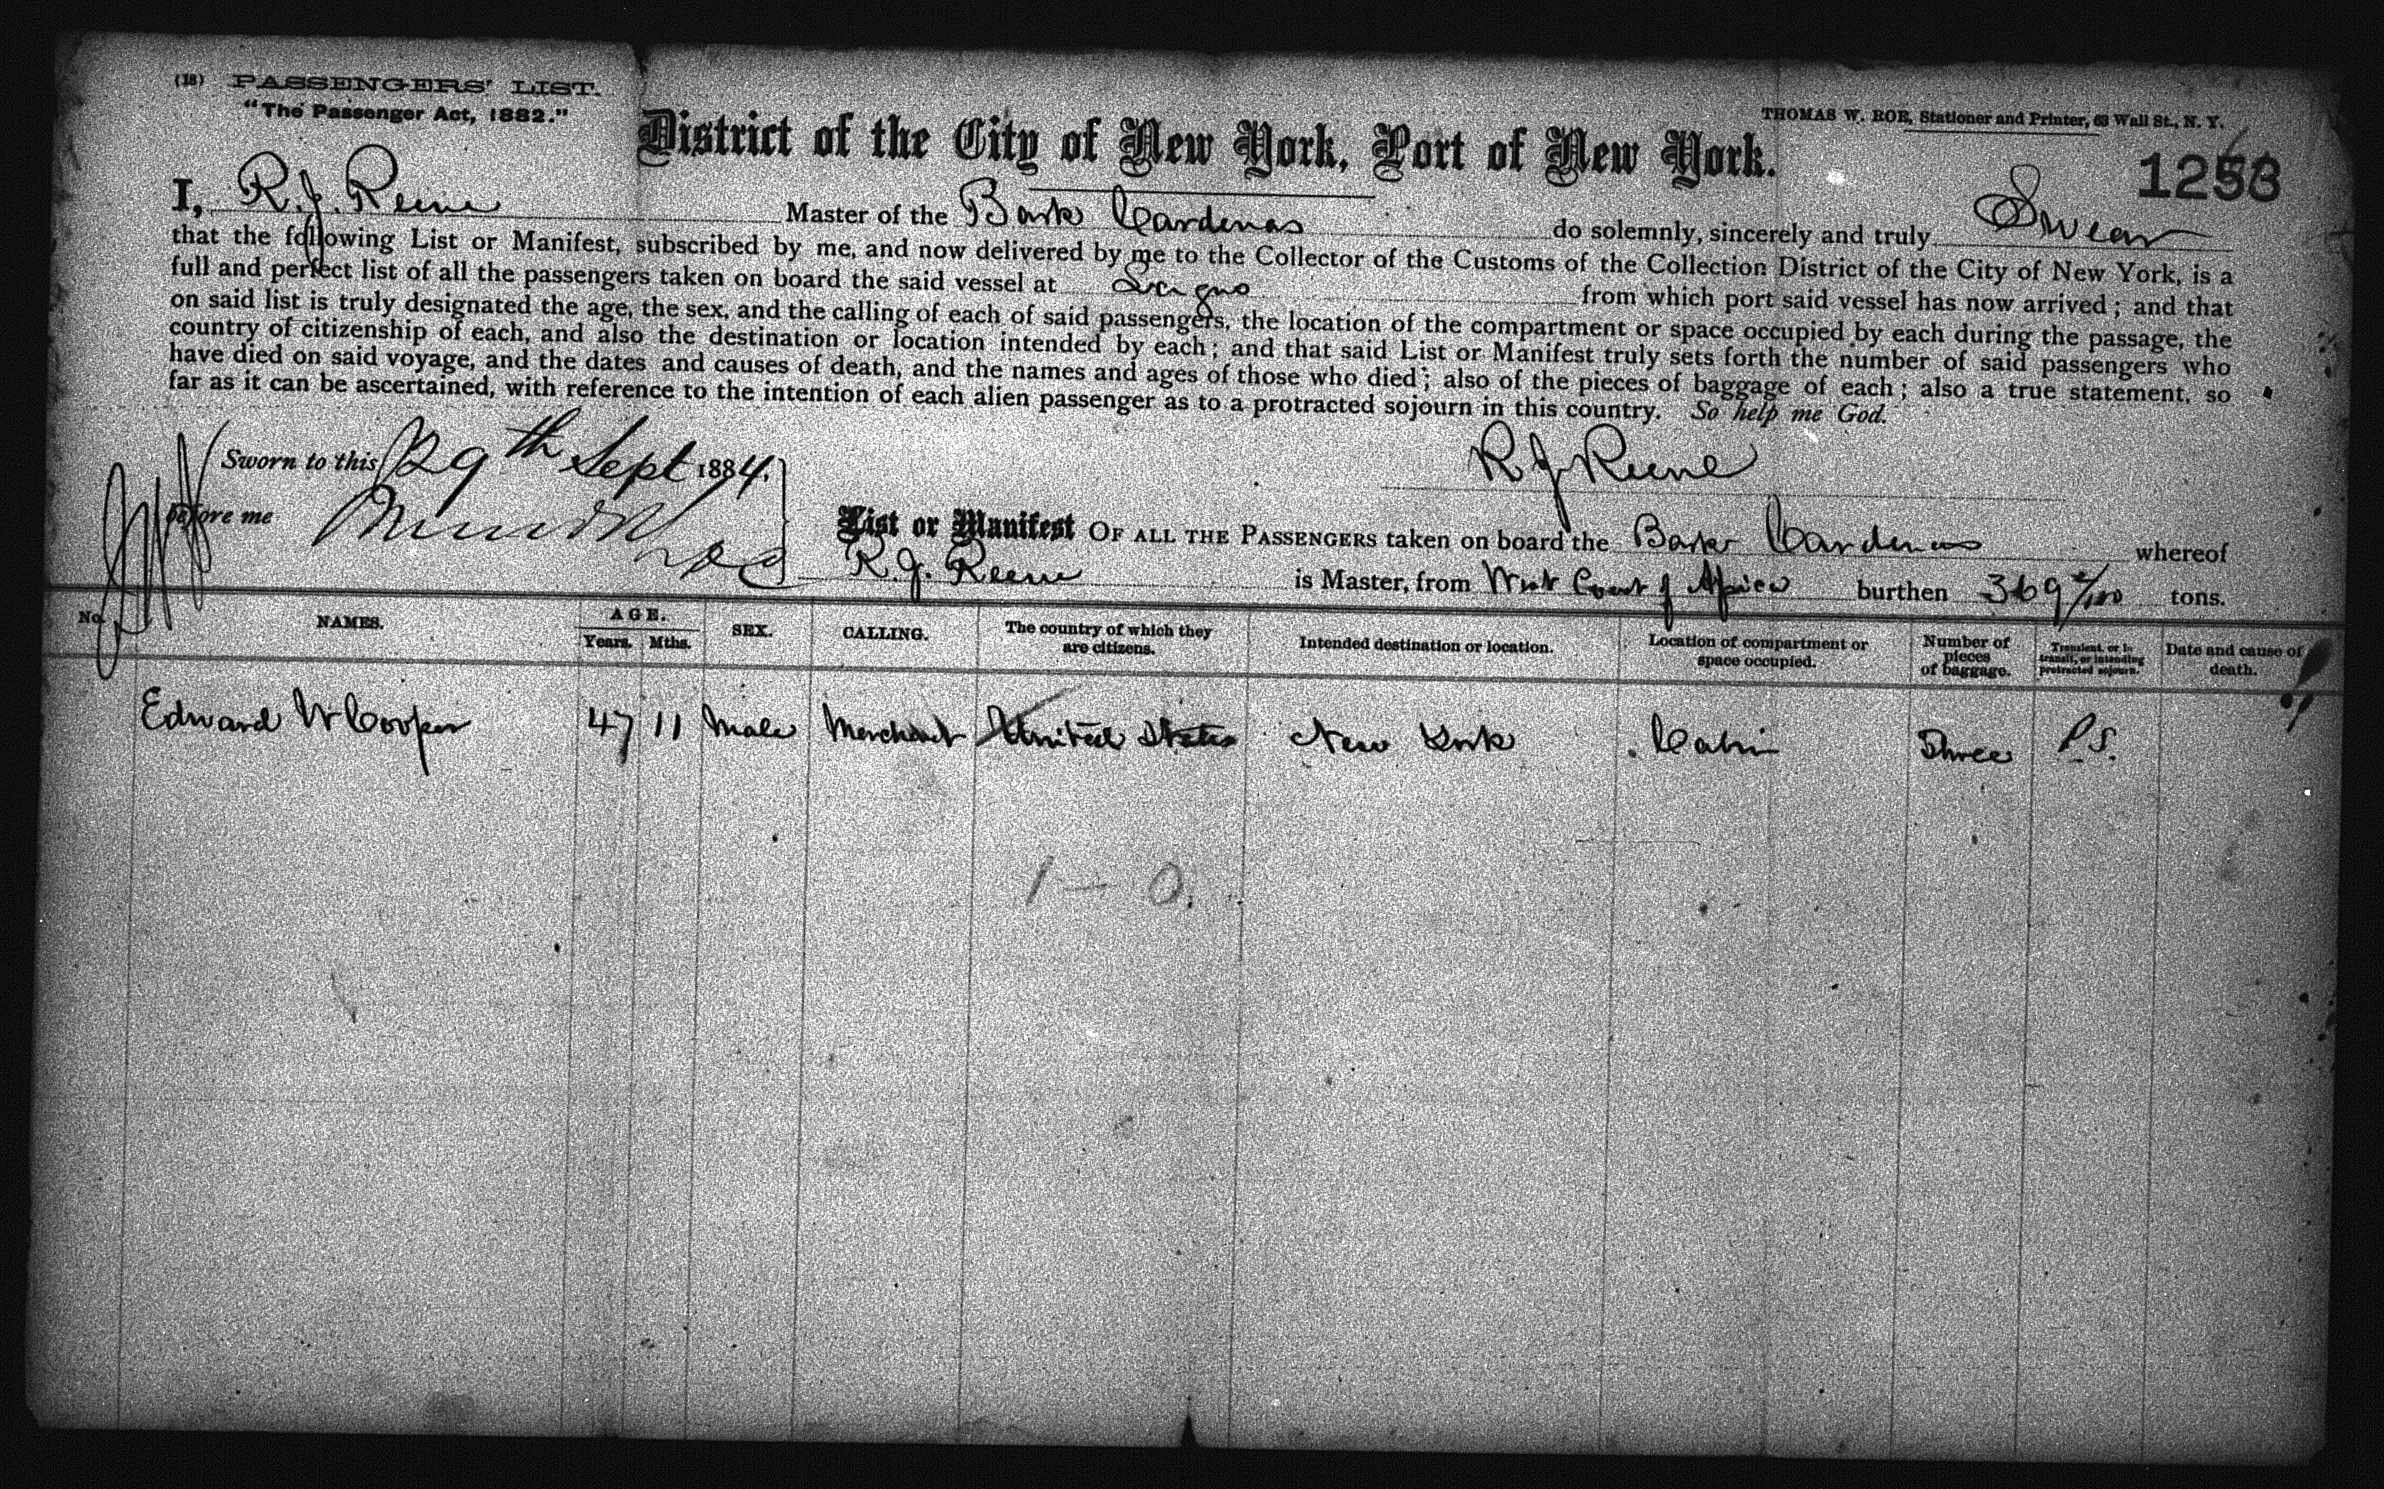 (18) PASSENGERS' LIST.
"The Passenger Act, 1882."
THOMAS W. ROE, Stationer and Printer, 63 Wall St., N. Y.
District of the City of New York, Port of New York.
I, R. J. Reene Master of the Bark Cardenas do solemnly, sincerely and truly Swear
that the following List or Manifest, subscribed by me, and now delivered by me to the Collector of the Customs of the Collection District of the City of New York, is a
full and perfect list of all the passengers taken on board the said vessel at from which port said vessel has now arrived; and that
on said list is truly designated the age, the sex, and the calling of each of said passengers, the location of the compartment or space occupied by each during the passage, the
country of citizenship of each, and also the destination or location intended by each; and that said List or Manifest truly sets forth the number of said passengers who
have died on said voyage, and the dates and causes of death, and the names and ages of those who died; also of the pieces of baggage of each; also a true statement, so
far as it can be ascertained, with reference to the intention of each alien passenger as to a protracted sojourn in this country. So help me God.
Sworn to this 29th Sept 1884.
R J Reene
before me
List or Manifest OF ALL THE PASSENGERS taken on board the Bark Cardenas whereof
R. J. Reene is Master, from West Coast of Africa burthen 369 tons.
No. NAMES. AGE. Years. Mths. SEX. CALLING. The country of which they are citizens. Intended destination or location. Location of compartment or space occupied. Number of pieces of baggage. Transient, or in transit, or intending protracted sojourn. Date and cause of death.
Edward W Cooper 47 11 Male Merchant United States New York Cabin Three P.S.
1 — 0.